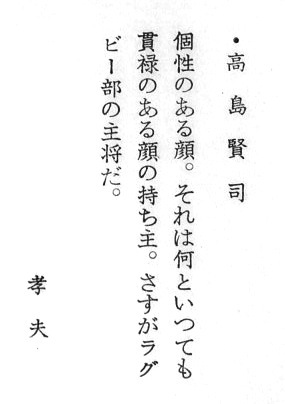 ・高島賢司
個性のある顔。それは何といつても
貫禄のある顔の持ち主。さすがラグ
ビー部の主将だ。
孝夫